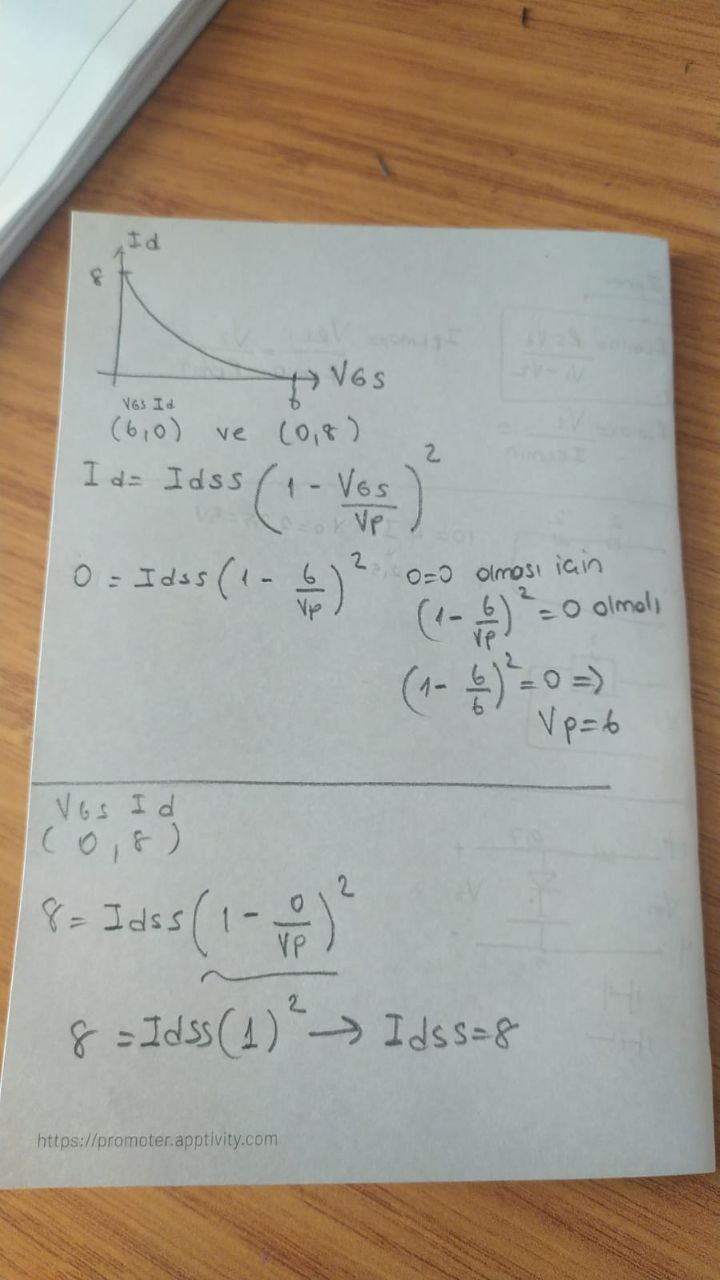 Id
8
VGS
6
VGS Id
(6,0) ve (0,8)
Id = Idss (1 - VGS/Vp)²
0 = Idss (1 - 6/Vp)² 0=0 olması için
(1 - 6/Vp)² = 0 olmalı
(1 - 6/6)² = 0 =>
Vp=6
VGS Id
(0,8)
8 = Idss (1 - 0/Vp)²
8 = Idss (1)² → Idss=8
https://promoter.apptivity.com